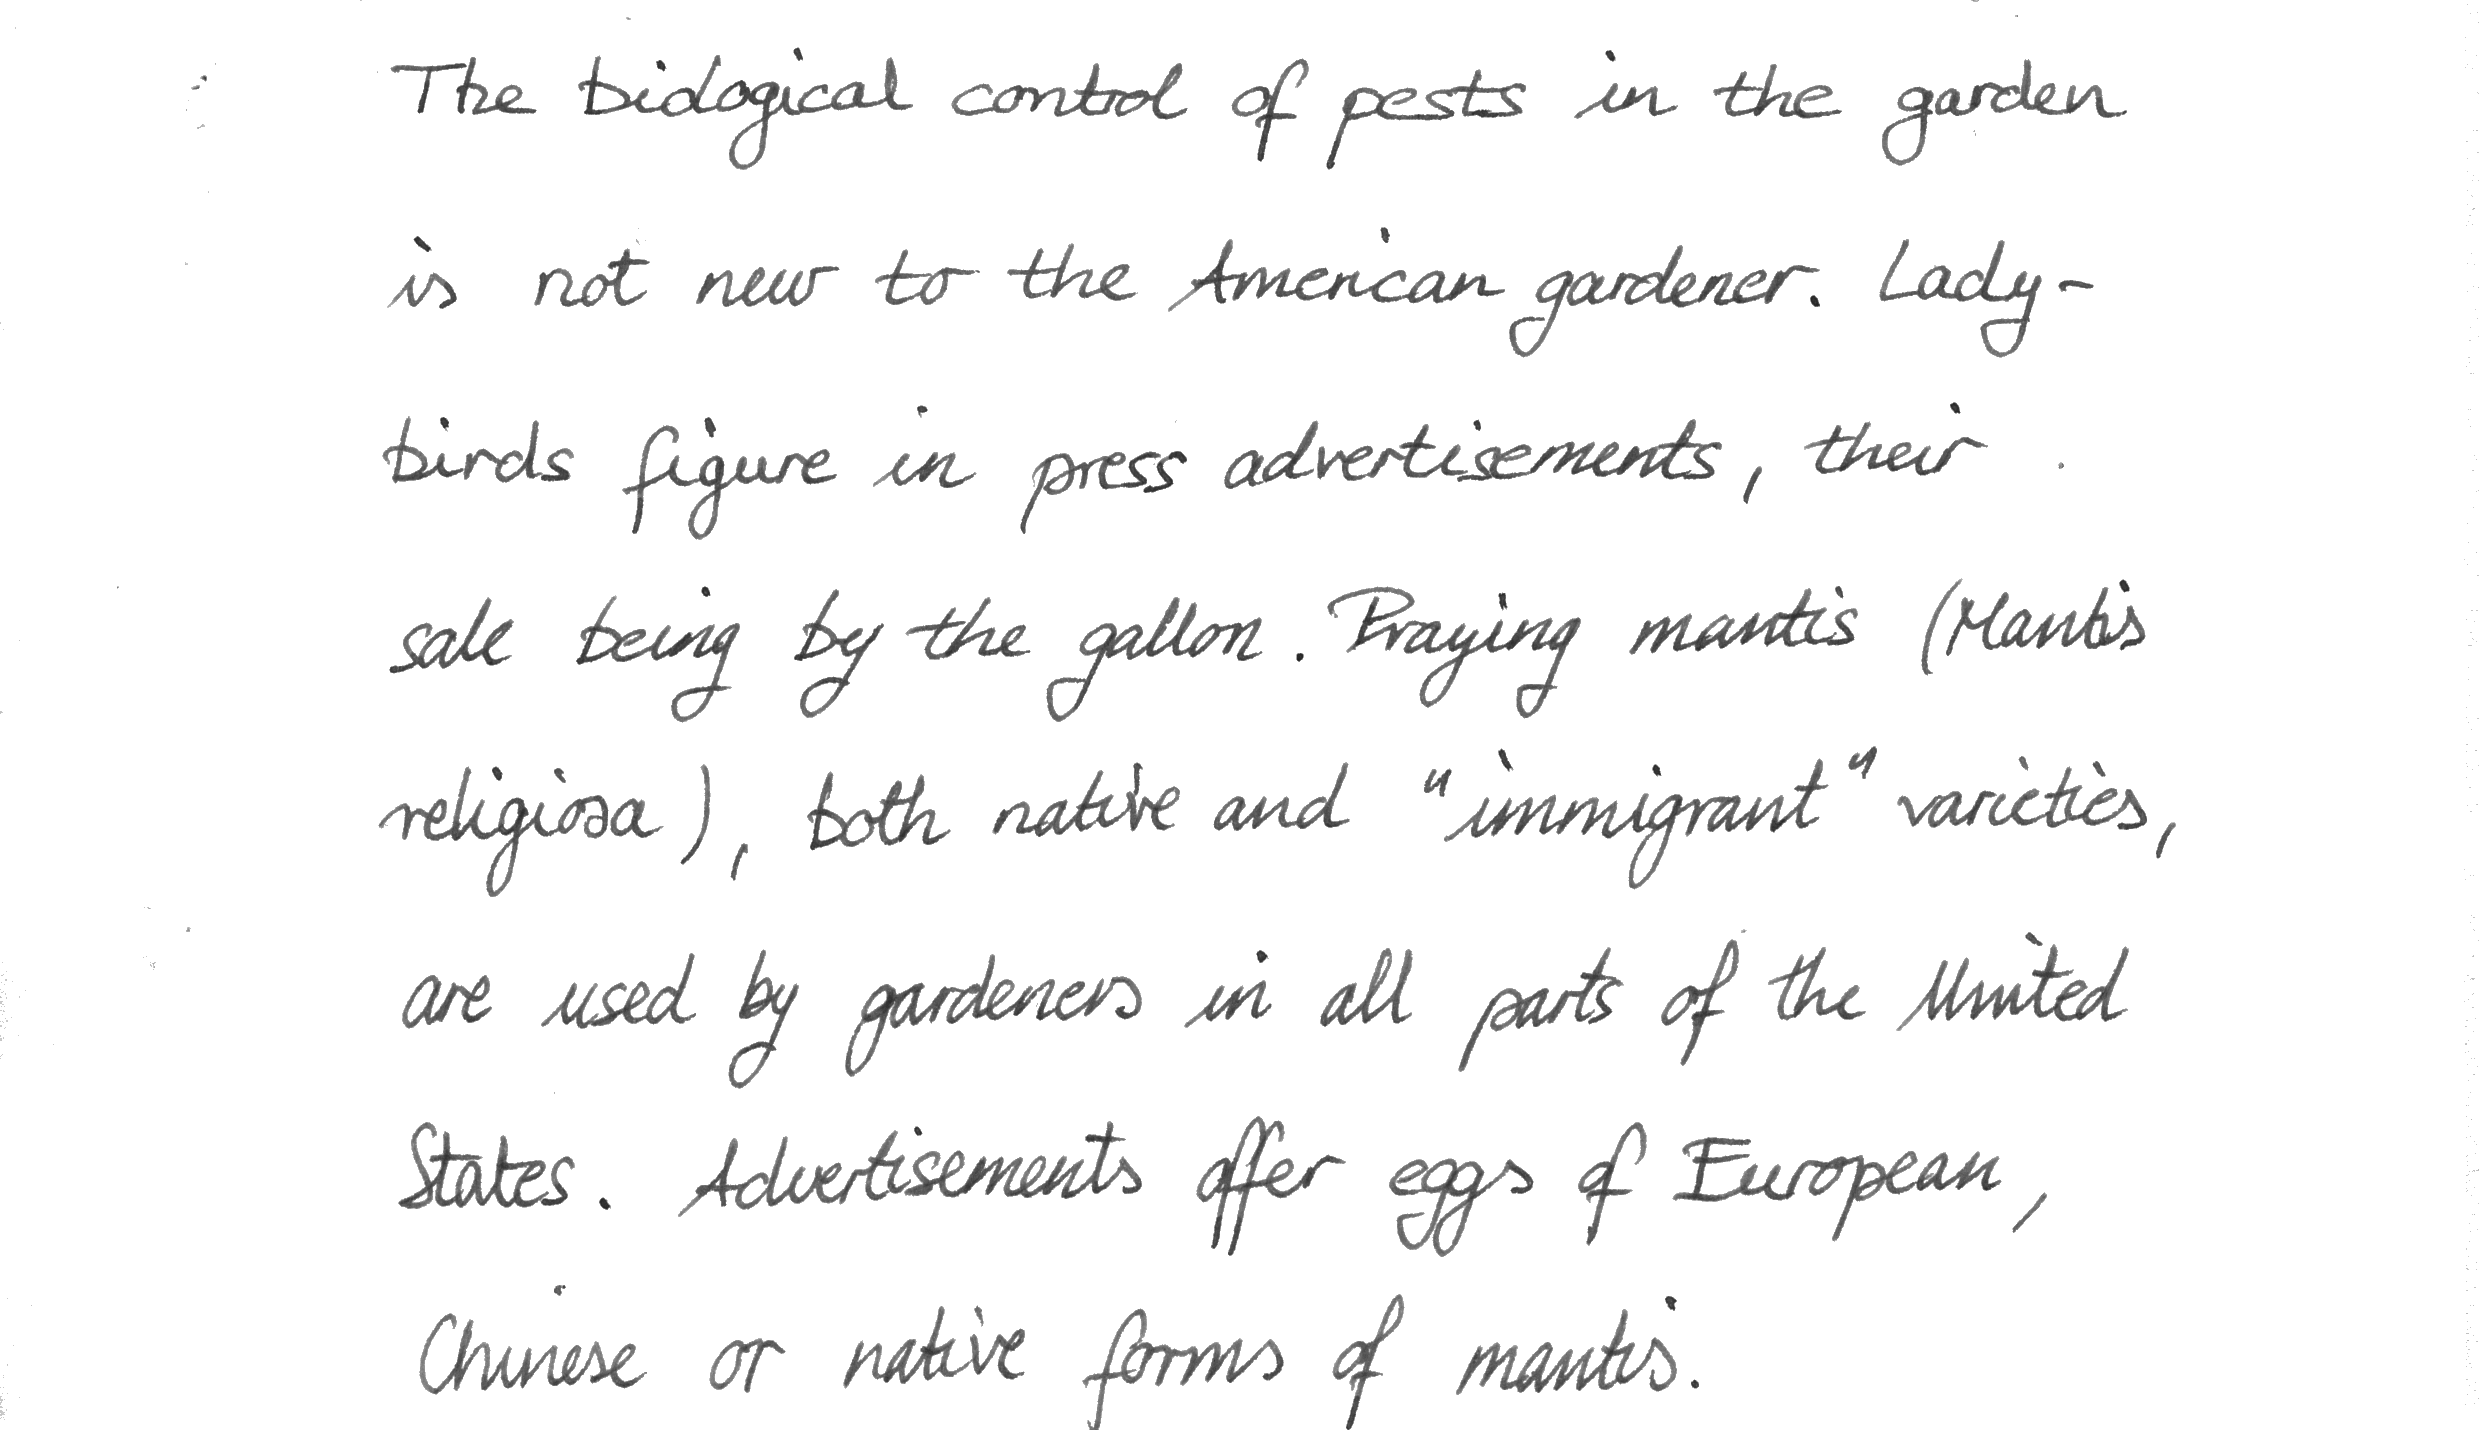 The biological control of pests in the garden
is not new to the American gardener. Lady-
birds figure in press advertisements, their
sale being by the gallon. Praying mantis (Mantis
religiosa), both native and "immigrant" varieties,
are used by gardeners in all parts of the United
States. Advertisements offer eggs of European,
Chinese or native forms of mantis.